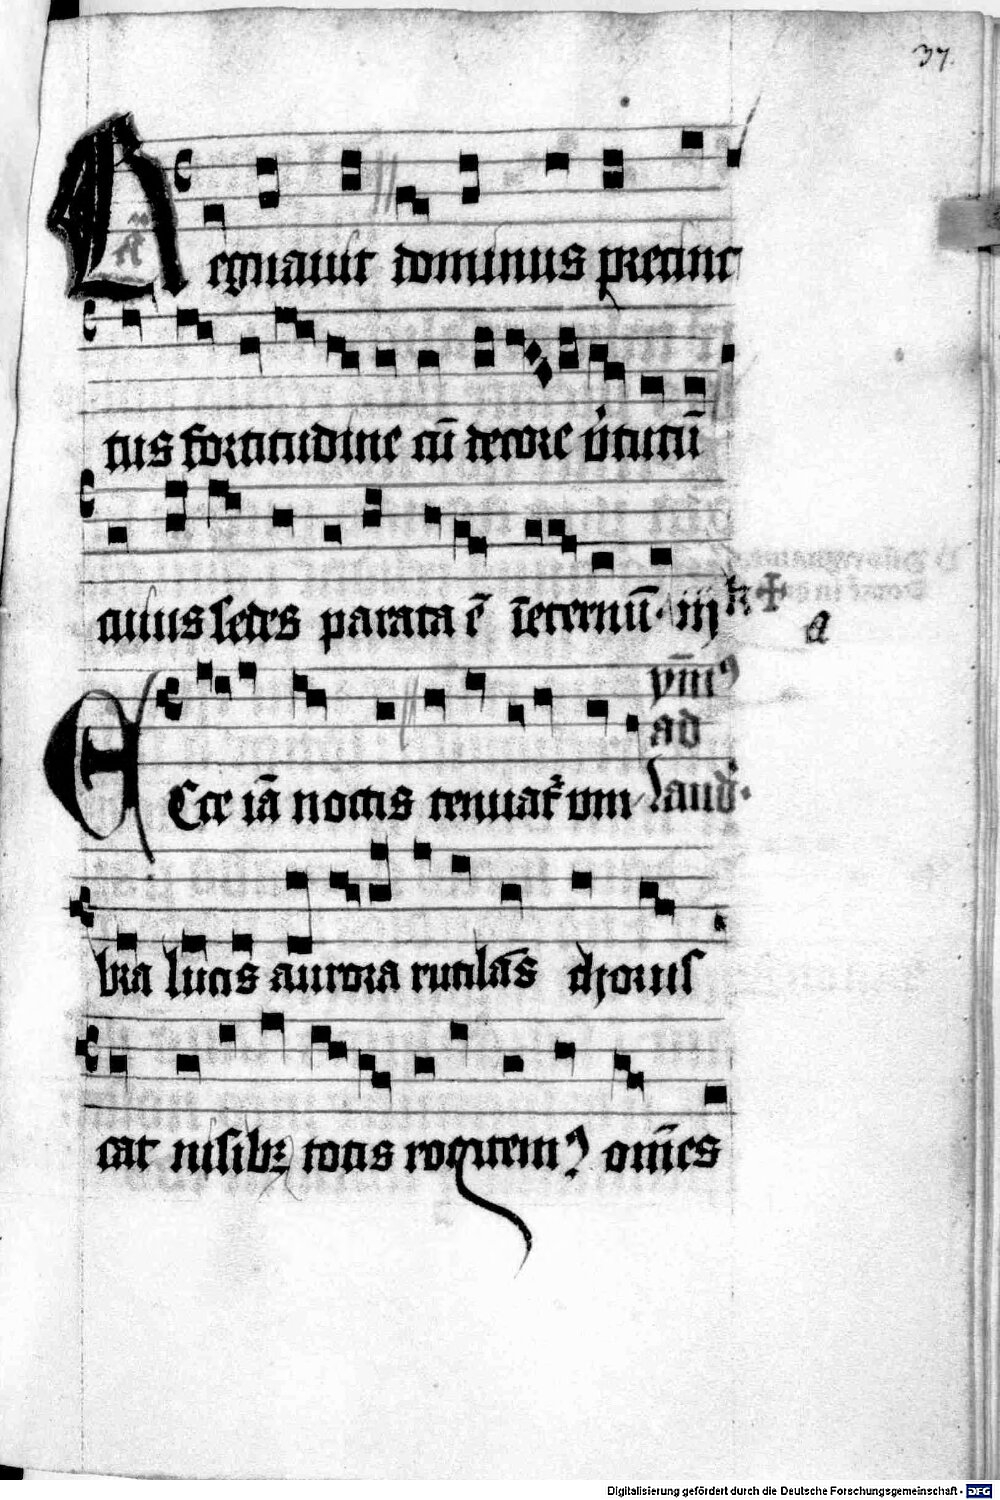 37.
Regnauit dominus precinc
tus fortitudine cū decore v̓tutū
cuius sedes parata ē īeternū iij
a
Ecce iā noctis tenuat᷑ vm
ym̄⁹
ad
laud᷑
bra lucis aurora rutilās chorus
cat nisibꝫ totis rogitem⁹ om̄es
Digitalisierung gefördert durch die Deutsche Forschungsgemeinschaft - DFG